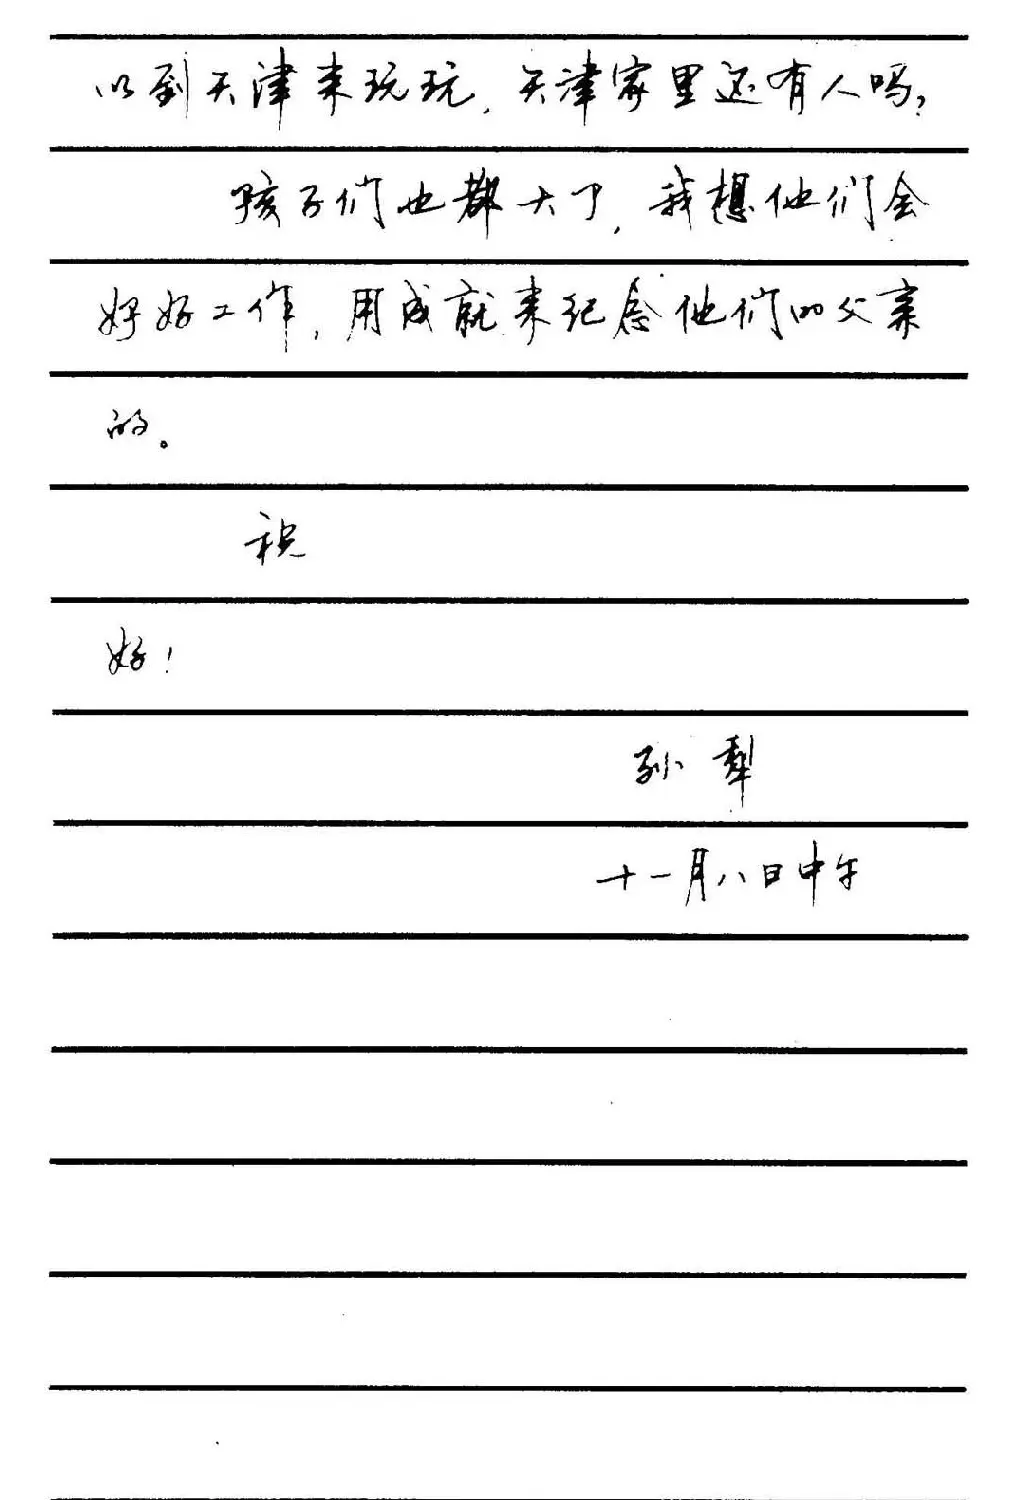 以到天津来玩玩，天津家里还有人吗？
孩子们也都大了，我想他们会
好好工作，用成就来纪念他们的父亲
的。
祝
好！
孙犁
十一月八日中午